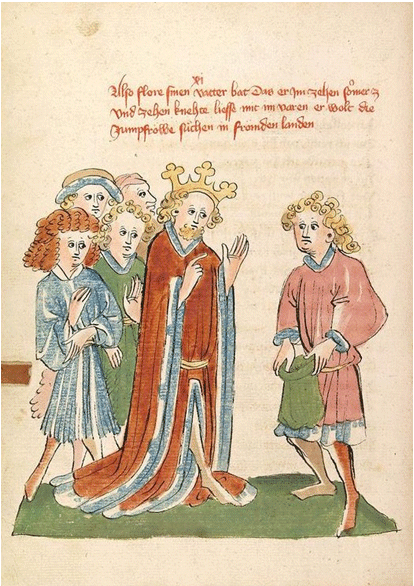 xi
Also flore sinen vatter bat Das er im zehen sömer z
Und zehen knehte liesse mit im varen er wolt die
Jumpfrowe suchen in fromden landen